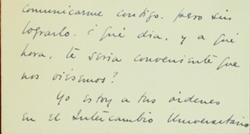 comunicarme contigo. pero sin
lograrlo. ¿ qué día, y a qué
hora, te sería conveniente que
nos viésemos?
Yo estoy a tus órdenes
en el Intercambio Universitario